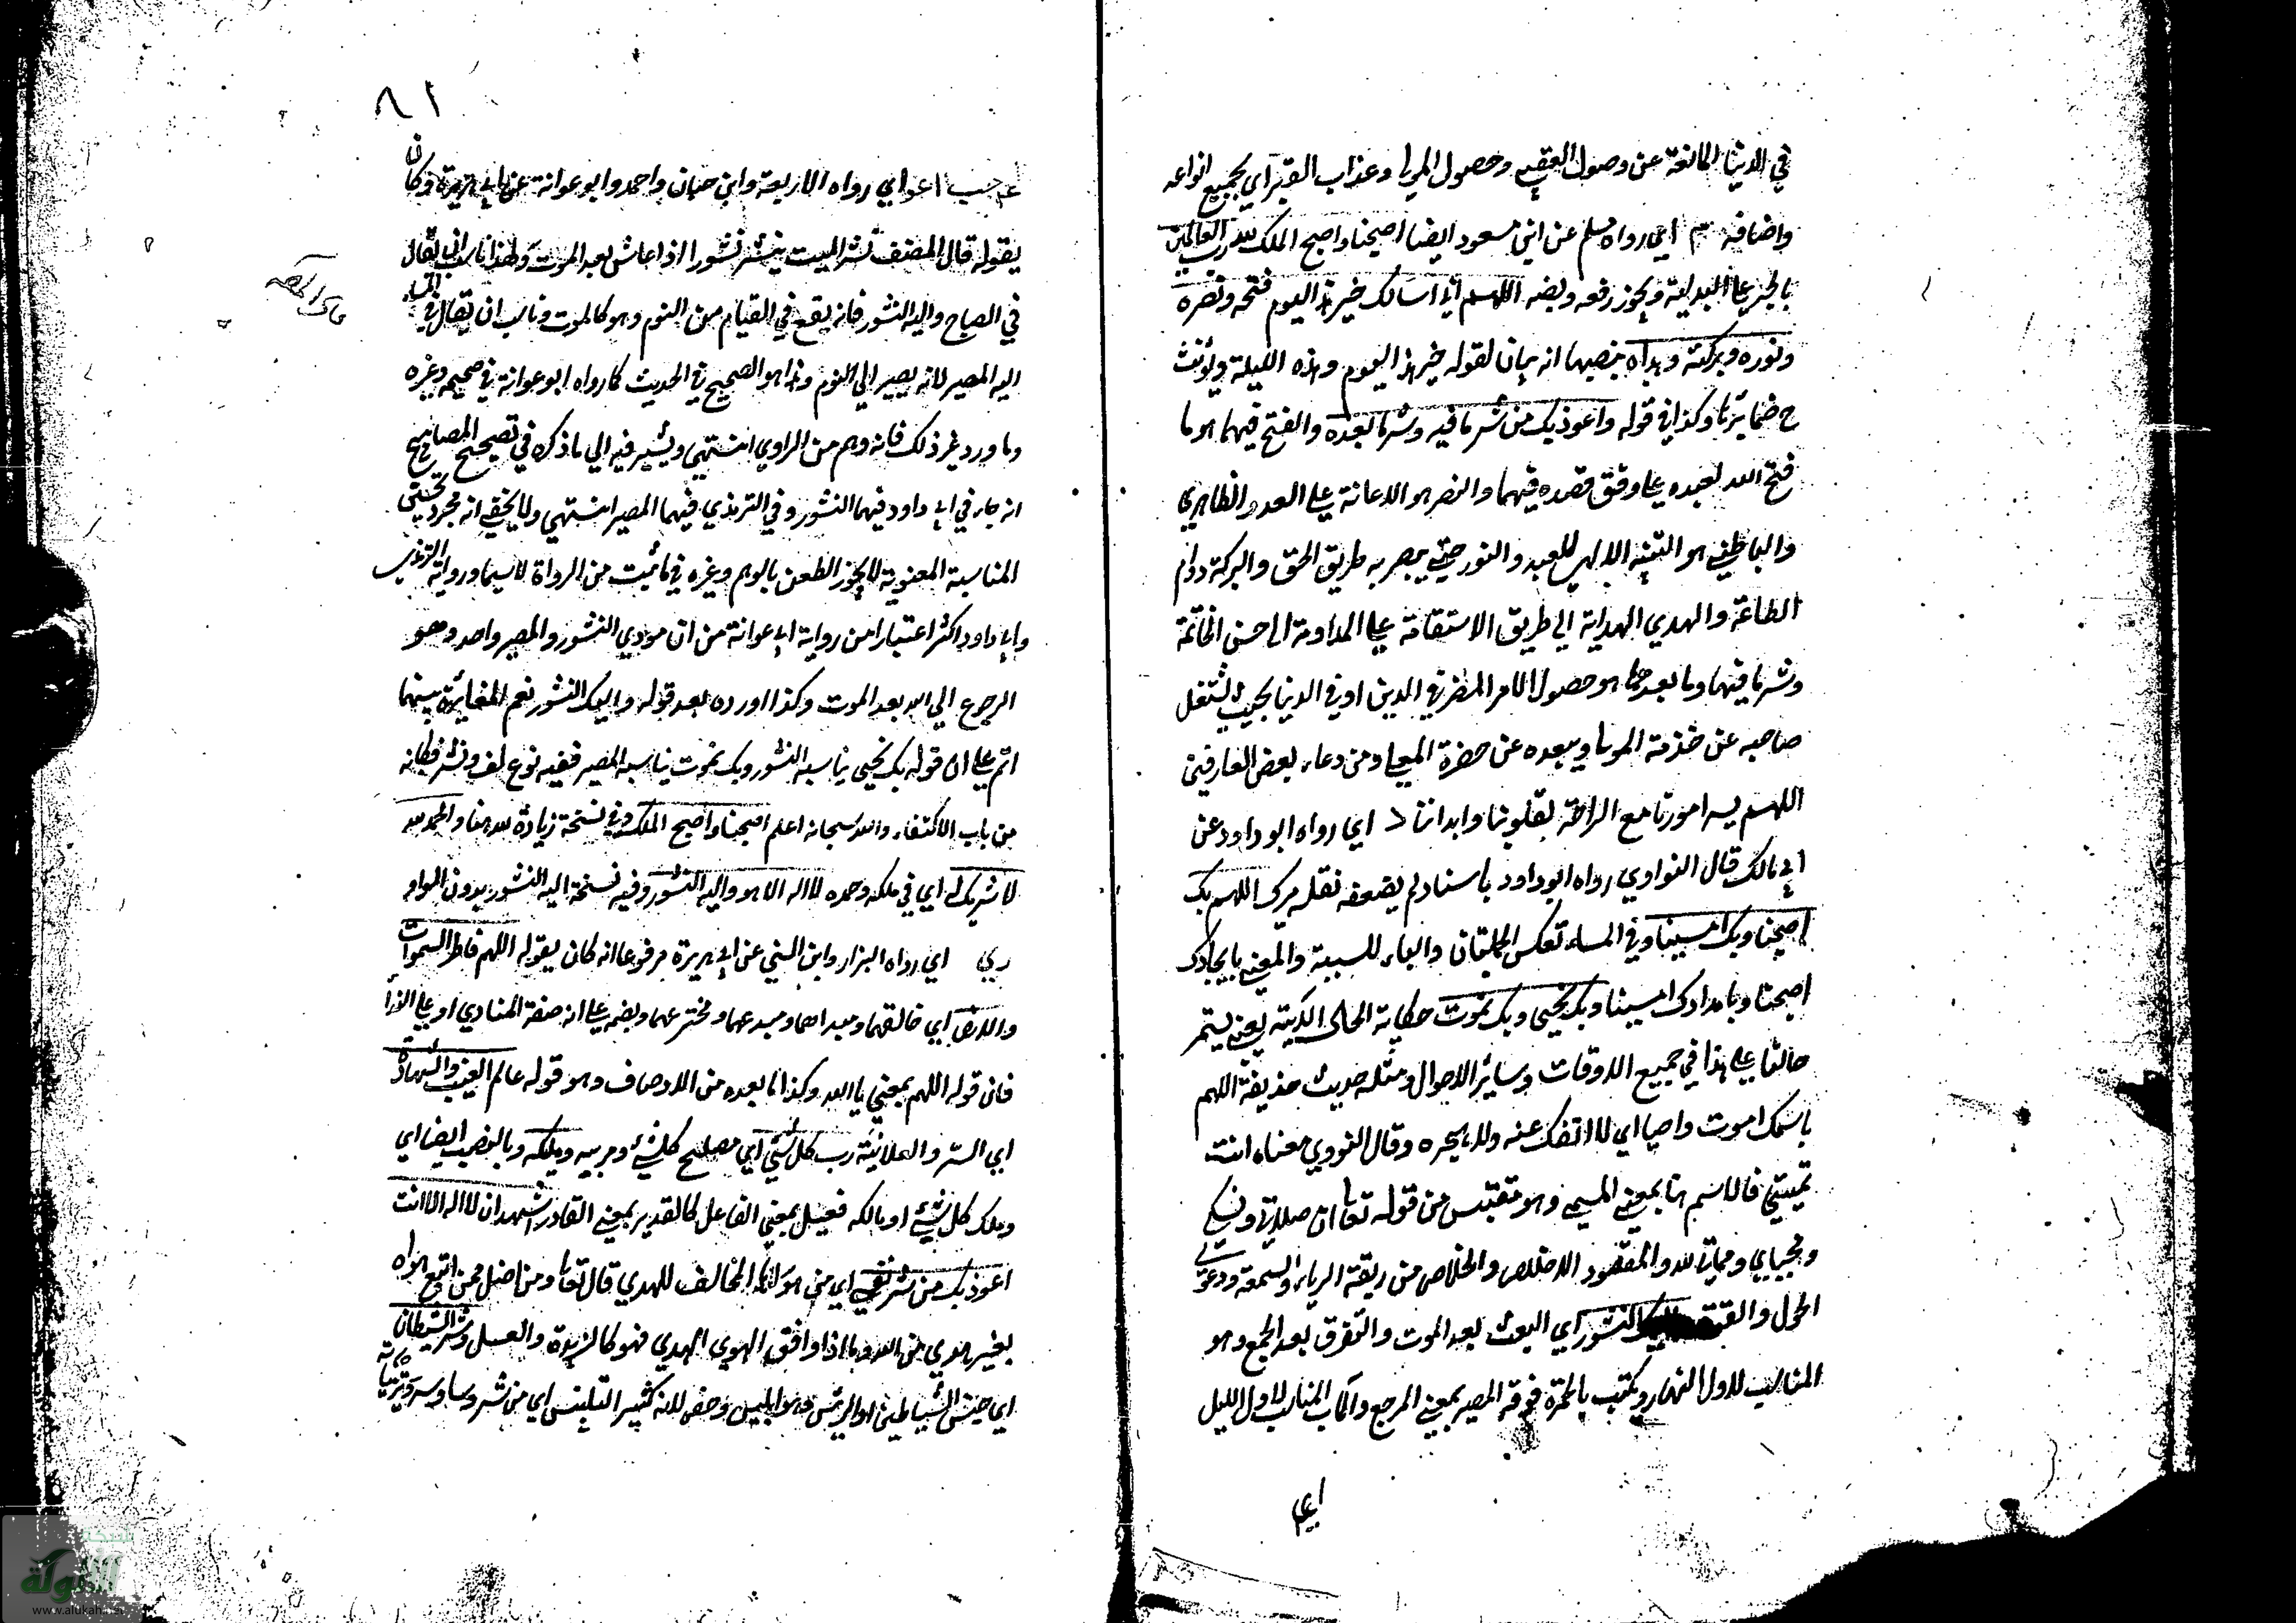 في الدنيا المانعة عن وصول العقبى وحصول المولى وعذاب القبر اي بجميع انواعه
واضافته م اي رواه مسلم عن ابن مسعود ايضا اصبحنا واصبح الملك لله رب العالمين
بالجر على البدلية ويجوز رفعه ونصبه اللهم اني اسالك خير هذا اليوم فتحه ونصره
ونوره وبركته وهداه بنصبها انه بيان لقوله خير هذا اليوم وهذه الليلة ويؤنث
ح ضمائرها وكذا في قوله واعوذ بك من شر ما فيه وشر ما بعده والفتح فيهما هو ما
فتح الله لعبده على وفق قصده فيهما والنصر هو الاعانة على العدو الظاهري
والباطني هو الالهي للعبد والنور حتى يبصر به طريق الحق والبركة دوام
الطاعة والهدي الهداية الى طريق الاستقامة على المداومة الى حسن الخاتمة
وشر ما فيهما وما بعدهما هو حصول الامر المضر في الدين او في الدنيا بحيث يشغل
صاحبه عن خدمة المولى ويبعده عن حضرة ومن دعاء بعض العارفين
اللهم يسر امورنا مع الراحة لقلوبنا وابداننا د اي رواه ابو داود عن
ابي مالك قال النواوي رواه ابو داود باسناد لم يضعفه نقله ميرك اللهم بك
اصبحنا وبك امسينا وفي المساء تعكس الجملتان والباء للسببية والمعنى بايجادك
اصبحنا وبامدادك امسينا وبك نحيى وبك نموت حكاية الحال الاتية يعني يستمر
حالنا على هذا في جميع الاوقات وسائر الاحوال ومثله حديث حذيفة اللهم
باسمك اموت واحيا اي لا انفك عنه ولا اهجره وقال النووي معناه انت
تميتني فالاسم هنا بمعنى المسمى وهو مقتبس من قوله تعالى ان صلاتي ونسكي
ومحياي ومماتي لله والمقصود الاخلاص والخلاص من ربقة الرياء والسمعة ودعوى
الحول والقوة واليك النشور اي البعث بعد الموت والتفرق بعد الجمع وهو
المناسب لاول النهار ويكتب بالحمرة فوقه المصير بمعنى المرجع والمآب المناسب لاول الليل
اي
٨١
اي رواه الاربعة وابن حبان واحمد وابو عوانة عن ابي هريرة وكان
يقوله قال المصنف نشر الميت ينشر نشورا اذا عاش بعد الموت ولهذا ناسب ان يقال
في الصباح واليه النشور فانه يقع في القيام من النوم وهو كالموت وناسب ان يقال في المساء
اليه المصير لانه يصير الى النوم وهذا هو الصحيح في الحديث كما رواه ابو عوانة في صحيحه وغيره
وما ورد غير ذلك فانه وهم من الراوي انتهى ويشير فيه الى ما ذكره في تصحيح المصابيح
انه جاء في ابي داود فيهما النشور وفي الترمذي فيهما المصير انتهى ولا يخفى انه بمجرد تحقق
المناسبة المعنوية لا يجوز الطعن بالوهم وغيره فيما ثبت من الرواة لا سيما ورواية الترمذي
وابي داود اكثر اعتبارا من رواية ابي عوانة من ان مودي النشور والمصير واحد وهو
الرجوع الى الله بعد الموت وكذا اورده بعد قوله واليك النشور نعم المغايرة بينهما
اتم على ان قوله بك نحيى يناسبه النشور وبك نموت يناسبه المصير ففيه نوع لف ونشر فكانه
من باب الاكتفاء والله سبحانه اعلم اصبحنا واصبح الملك وفي نسخة زيادة لله هنا والحمد لله
لا شريك له اي في ملكه وحده لا اله الا هو واليه النشور وفيه نسخة اليه النشور بدون الواو
ري اي رواه البزار وابن السني عن ابي هريرة مرفوعا انه كان يقوله اللهم فاطر السموات
والارض اي خالقهما ومبداهما ومبدعهما ومخترعهما وبضمه على انه صفة المنادي او على النداء
فان قوله اللهم بمعنى يا الله وكذا ما بعده من الاوصاف وهو قوله عالم الغيب والشهادة
اي السر والعلانية رب كل شيء اي مصلح كل شيء ومربيه ومليكه وبالنصب ايضا اي
وملك كل شيء او مالكه فعيل بمعنى الفاعل كالقدير بمعنى القادر اشهد ان لا اله الا انت
اعوذ بك من شر نفسي اي من هواها المخالف للهدي قال تعالى ومن اضل ممن اتبع هواه
بغير هدي من الله وما اذا وافق الهوي الهدي فهو كالزبدة والعسل وشر الشيطان
اي جنس الشياطين او الرئيس وهو ابليس وخص لانه كثير التلبيس اي من شر وساوسه
شبكة
الألوكة
www.alukah.net